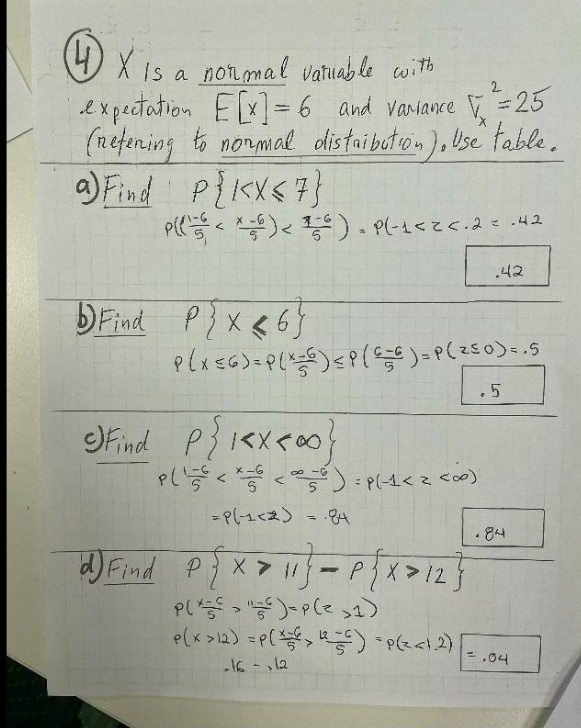 ④ X is a normal variable with
expectation E[x] = 6 and variance σₓ² = 25
(refering to normal distribution). Use table.
a) Find P{1<X≤7}
P((1-6/5 < x-6/5) < 7-6/5) = P(-1<z<.2 = .42
.42
b) Find P{X≤6}
P(x≤6) = P(x-6/5) ≤ P(6-6/5) = P(z≤0) = .5
.5
c) Find P{1<X<∞}
P(1-6/5 < x-6/5 < ∞-6/5) = P(-1<z<∞)
= P(-1<z) = .84
.84
d) Find P{X>11} - P{X>12}
P(x-6/5 > 11-6/5) = P(z>1)
P(x>12) = P(x-6/5 > 12-6/5) = P(z<1.2)
.16 - .12
= .04